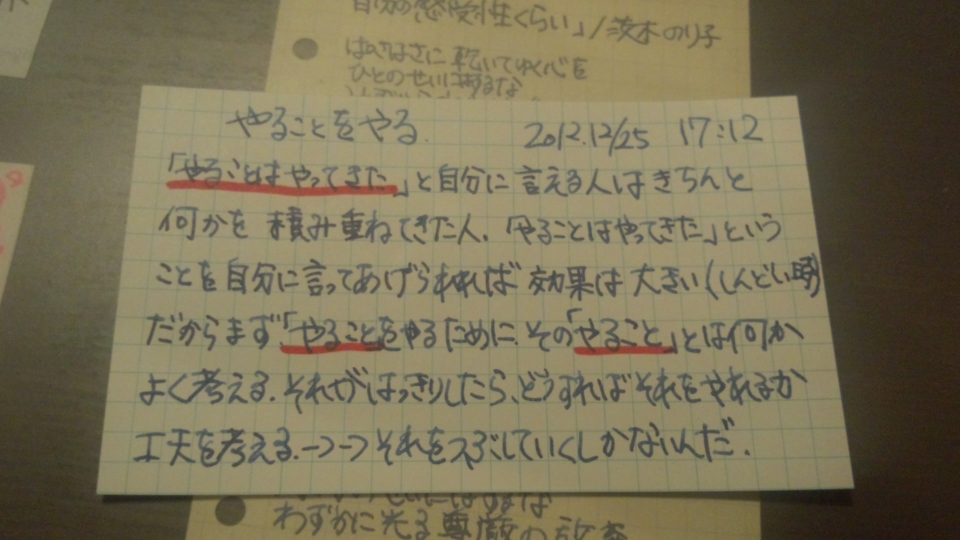 自分の感受性くらい」/茨木のり子
ぱさぱさに乾いてゆく心を
ひとのせいにはするな
やることをやる.
2012.12/25 17:12
「やることはやってきた」と自分に言える人はきちんと
何かを積み重ねてきた人.「やることはやってきた」という
ことを自分に言ってあげられれば効果は大きい(しんどい時)
だからまず、「やることをやるために、その「やること」とは何か
よく考える.それがはっきりしたら、どうすればそれをやれるか
工夫を考える.→→それをつぶしていくしかないんだ.
わずかに光る尊厳の放棄